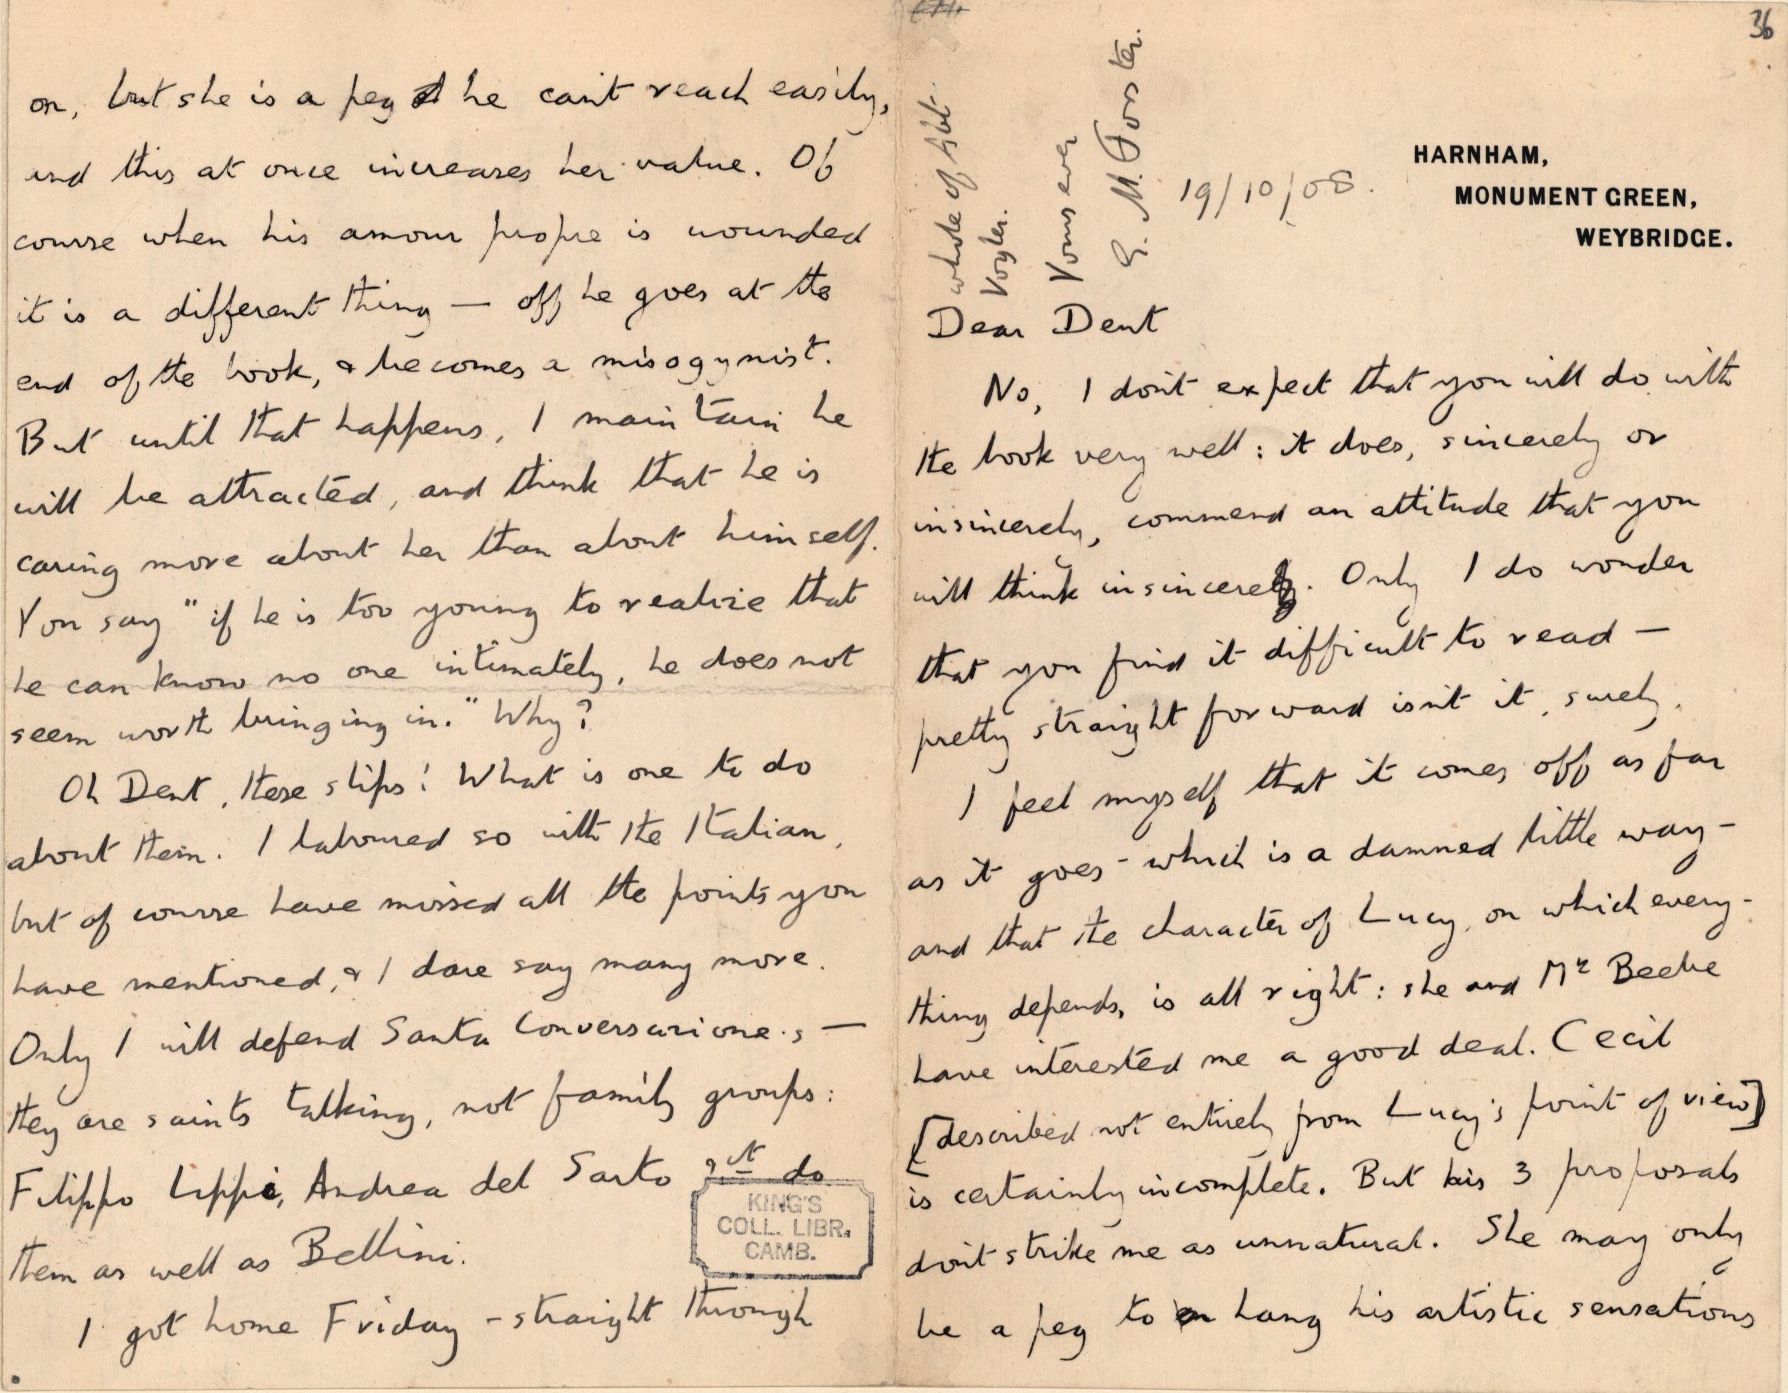 36
HARNHAM,
MONUMENT GREEN,
WEYBRIDGE.
19/10/08.
Dear Dent
No, I don't expect that you will do with
the book very well : it does, sincerely or
insincerely, commend an attitude that you
will think insincere. Only I do wonder
that you find it difficult to read —
pretty straight forward isn't it, surely.
I feel myself that it comes off as far
as it goes - which is a damned little way -
and that the character of Lucy, on which every-
thing depends, is all right : she and Mr Beebe
have interested me a good deal. Cecil
[described not entirely from Lucy's point of view]
is certainly incomplete. But his 3 proposals
don't strike me as unnatural. She may only
be a peg to hang his artistic sensations
on, but she is a peg he can't reach easily,
and this at once increases her value. Of
course when his amour propre is wounded
it is a different thing — off he goes at the
end of the book, & becomes a misogynist.
But until that happens, I maintain he
will be attracted, and think that he is
caring more about her than about himself.
You say "if he is too young to realize that
he can know no one intimately, he does not
seem worth bringing in." Why?
Oh Dent, these slips! What is one to do
about them. I laboured so with the Italian,
but of course have missed all the points you
have mentioned, & I dare say many more.
Only I will defend Santa Conversazione.s —
they are saints talking, not family groups :
Filippo Lippi, Andrea del Sarto do
them as well as Bellini.
I got home Friday - straight through
whole of Abt
Vogler.
Yours ever
E. M. Forster.
KING'S
COLL. LIBR.
CAMB.